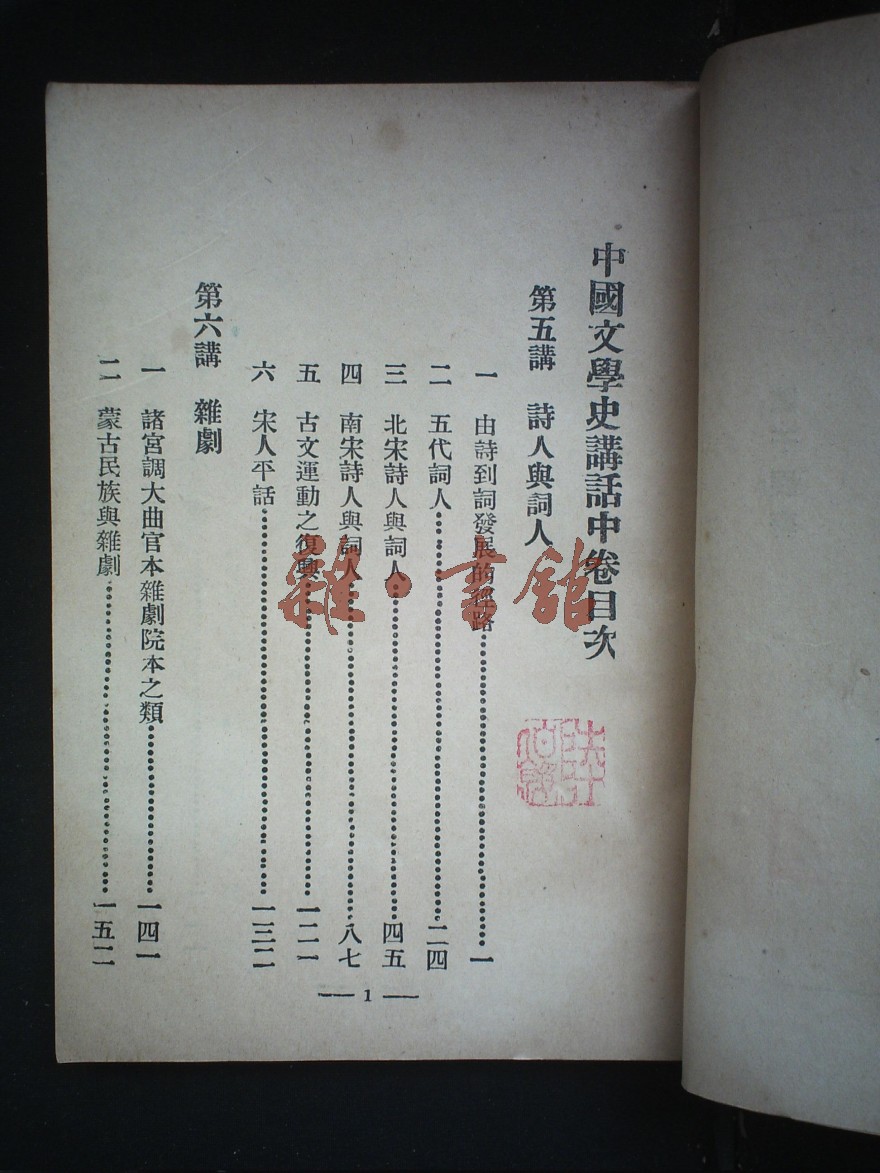 中國文學史講話中卷目次
第五講　詩人與詞人
一　由詩到詞發展的徑路…………一
二　五代詞人…………二四
三　北宋詩人與詞人…………四五
四　南宋詩人與詞人…………八七
五　古文運動之復興…………一二一
六　宋人平話…………一三二
第六講　雜劇
一　諸宮調大曲官本雜劇院本之類…………一四一
二　蒙古民族與雜劇…………一五二
— 1 —
雜·书舘